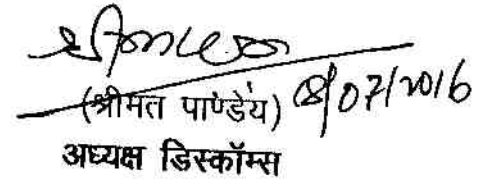 (श्रीमत पाण्डेय) 08/07/2016
अध्यक्ष डिस्कॉम्स